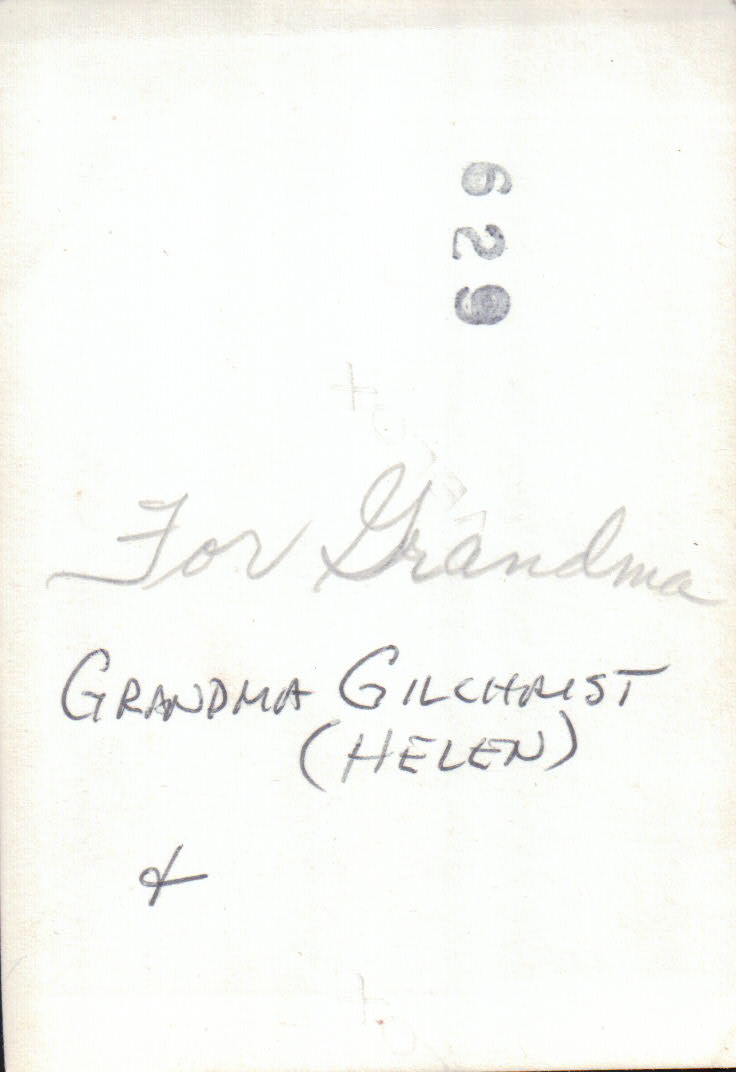 629
For Grandma
GRANDMA GILCHRIST
(HELEN)
&